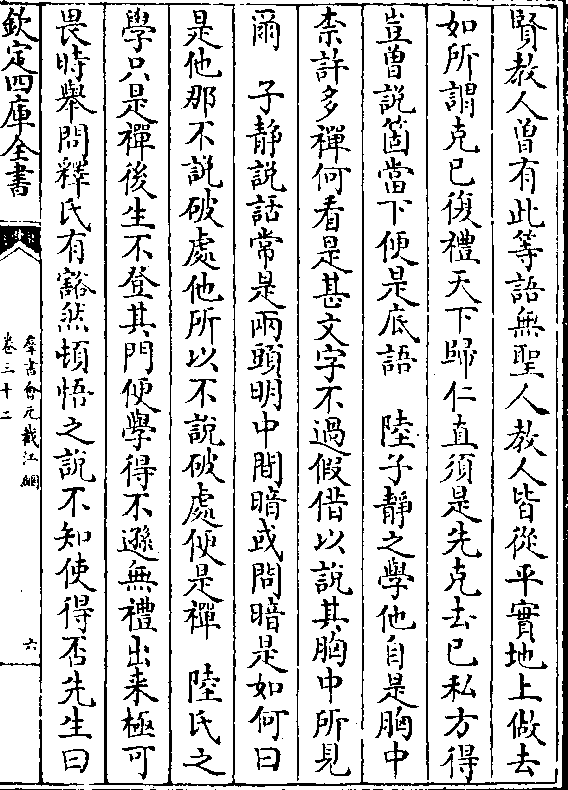 賢教人曽有此等語無聖人教人皆從平實地上做去
如所謂克已復禮天下歸仁直須是先克去已私方得
豈曽説箇當下便是底語　陸子靜之學他自是胸中
柰許多禪何看是甚文字不過假借以説其胸中所見
爾　子靜説話常是兩頭明中間暗或問暗是如何曰
是他那不説破處他所以不説破處便是禪　陸氏之
學只是禪後生不登其門便學得不遜無禮出来極可
畏時舉問釋氏有豁然頓悟之説不知使得否先生曰
欽定四庫全書
羣書會元截江網
卷三十二
六